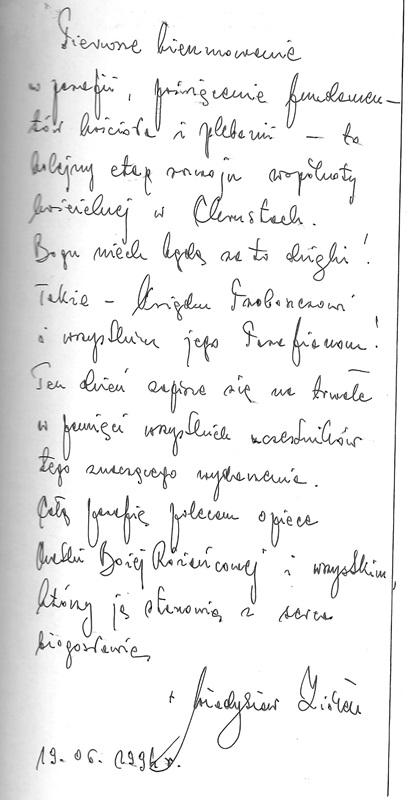 Pierwsze bierzmowanie
w parafii, poświęcenie fundamen-
tów kościoła i plebanii – to
kolejny etap rozwoju wspólnoty
kościelnej w Chrustach.
Bogu niech będą za to dzięki!
Także – Księdzu Proboszczowi
i wszystkim jego Parafianom!
Ten dzień zapisze się na trwałe
w pamięci wszystkich uczestników
tego znaczącego wydarzenia.
Całą parafię polecam opiece
Matki Bożej Różańcowej i wszystkim,
którzy ją stanowią z serca
błogosławię
+ Władysław Ziółek
19. 06. 1994 r.